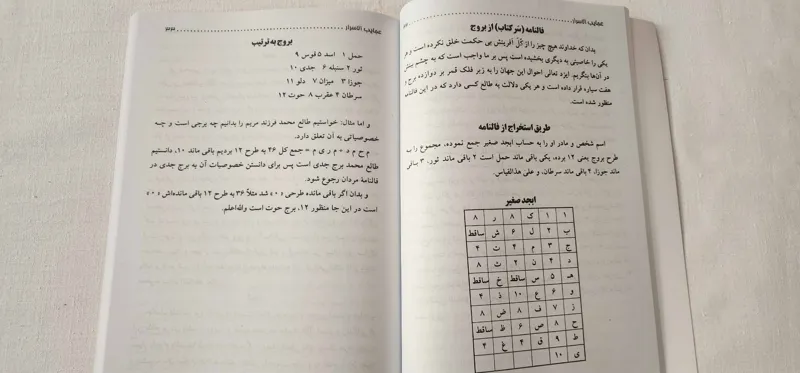 عجایب الاسرار
فالنامه (سر کتاب) از بروج
بدان که خداوند هیچ چیز را از کُلّ آفرینش بی حکمت خلق نکرده است و هر
یکی را خاصیتی به دیگری بخشیده است پس بر ما واجب است که به چشم بینش
در آن‌ها بنگریم. ایزد تعالی احوال این جهان را به زیر فلک قمر بر دوازده برج و
هفت سیاره قرار داده است و هر یکی دلالت به طالع کسی دارد که در این فالنامه
منظور شده است.
طریق استخراج از فالنامه
اسم شخص و مادر او را به حساب ابجد صغیر جمع نموده، مجموع را سه
طرح بروج یعنی ۱۲ برده، یکی باقی ماند حمل است ۲ باقی ماند ثور، ۳ باقی
ماند جوزا، ۴ باقی ماند سرطان، و علی هذالقیاس.
ابجد صغیر
ا ۱ ک ۸ ر ۸
ب ۲ ل ۶ ش ساقط
ج ۳ م ۴ ت ۴
د ۴ ن ۲ ث ۸
هـ ۵ س ساقط خ ساقط
و ۶ ع ۱۰ ذ ۴
ز ۷ ف ۸ ض ۸
ح ۸ ص ۶ ظ ساقط
ط ۹ ق ۴ غ ۴
ی ۱۰
عجایب الاسرار
بروج به ترتیب
حمل ۱ اسد ۵ قوس ۹
ثور ۲ سنبله ۶ جدی ۱۰
جوزا ۳ میزان ۷ دلو ۱۱
سرطان ۴ عقرب ۸ حوت ۱۲
و اما مثال: خواستیم طالع محمد فرزند مریم را بدانیم چه برجی است و چه
خصوصیاتی به آن تعلق دارد.
م ح م د + م ر ی م = جمع کل ۴۶ به طرح ۱۲ بردیم باقی ماند ۱۰، دانستیم
طالع محمد برج جدی است پس برای دانستن خصوصیات آن به برج جدی در
فالنامهٔ مردان رجوع شود.
و بدان اگر باقی مانده طرحی «۰» شد مثلاً ۳۶ به طرح ۱۲ باقی مانده‌اش «۰»
است در این جا منظور ۱۲، برج حوت است والله‌اعلم.